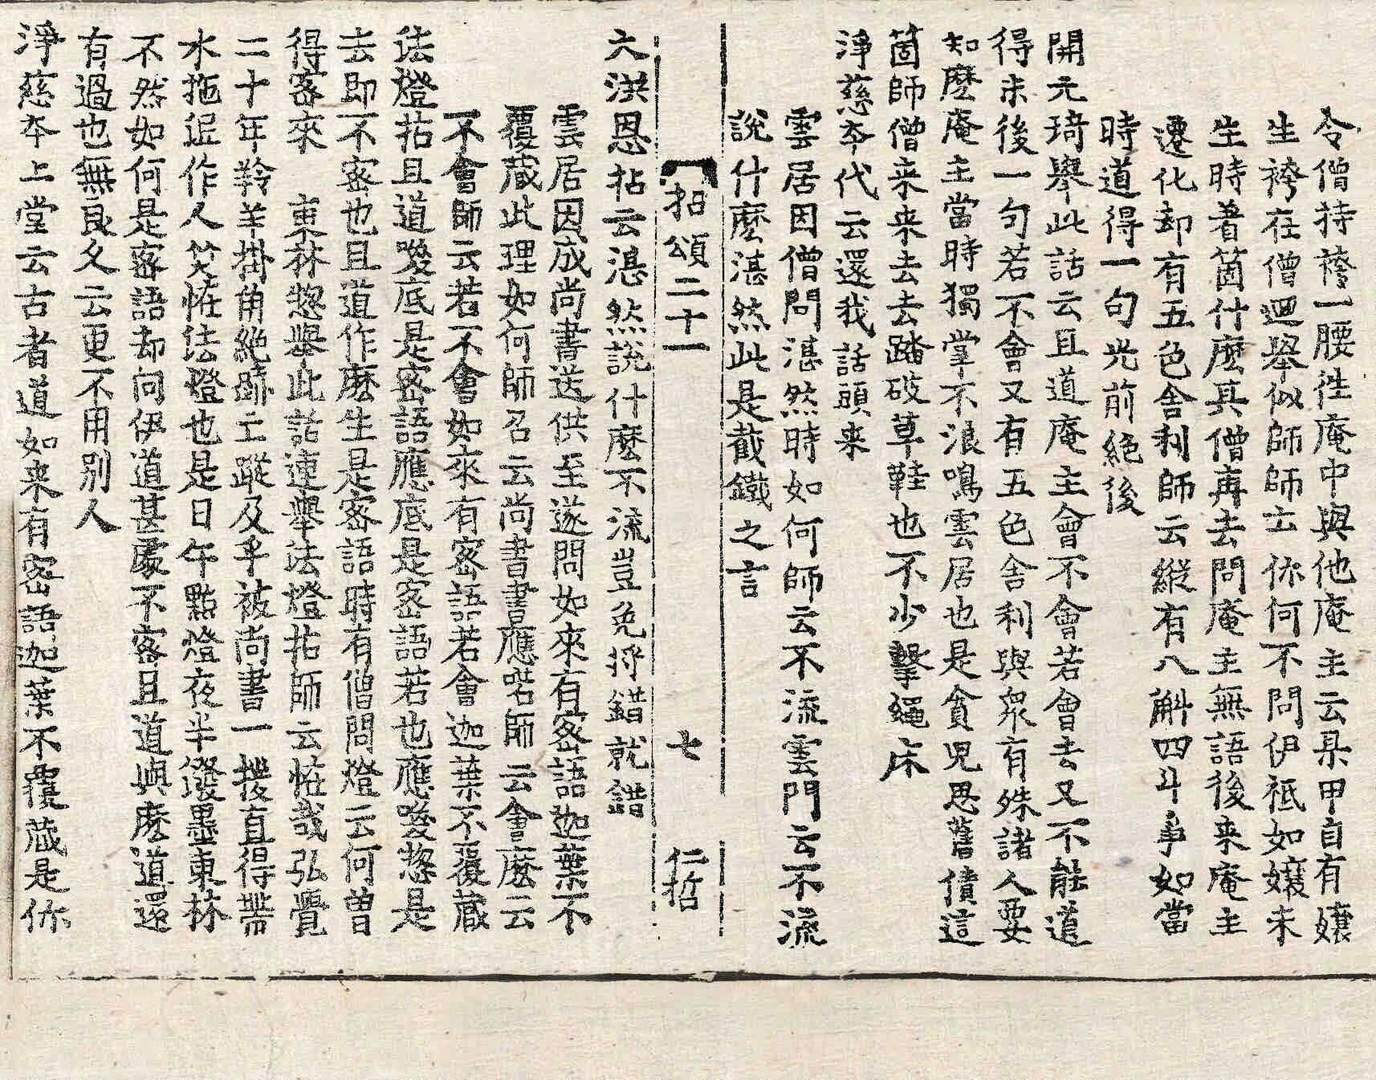 令僧持袴一腰徃庵中與他庵主云某甲自有孃
生袴在僧迴擧似師師云你何不問伊祇如孃未
生時着箇什麽其僧再去問庵主無語後来庵主
遷化却有五色舍利師云縱有八斛四斗爭如當
時道得一句光前絶後
開元琦擧此話云且道庵主會不會若會去又不能道
得末後一句若不會又有五色舍利與衆有殊諸人要
知麽庵主當時獨掌不浪鳴雲居也是貪児思舊債這
箇師僧来来去去踏破草鞋也不少擊繩床
淨慈夲代云還我話頭来
雲居因僧問湛然時如何師云不流雲門云不流
說什麽湛然此是截鐵之言
拈頌二十一
七
仁哲
大洪恩拈云湛然說什麽不流豈免将錯就錯
雲居因成尚書送供至遂問如來有密語迦葉不
覆蔵此理如何師召云尚書書應喏師云會麽云
不會師云若不會如來有密語若會迦葉不覆蔵
法燈拈且道喚底是密語應底是密語若也應喚惣是
去即不密也且道作麽生是密語時有僧問燈云何曾
得密來 東林惣擧此話連擧法燈拈師云恠哉弘覺
二十年羚羊掛角絶跡亡蹤及乎被尚書一拶直得帶
水拖泥作人笑恠法燈也是日午點燈夜半潑墨東林
不然如何是密語却向伊道甚處不密且道與麽道還
有過也無良久云更不用别人
淨慈夲上堂云古者道如来有密語迦葉不覆蔵是你